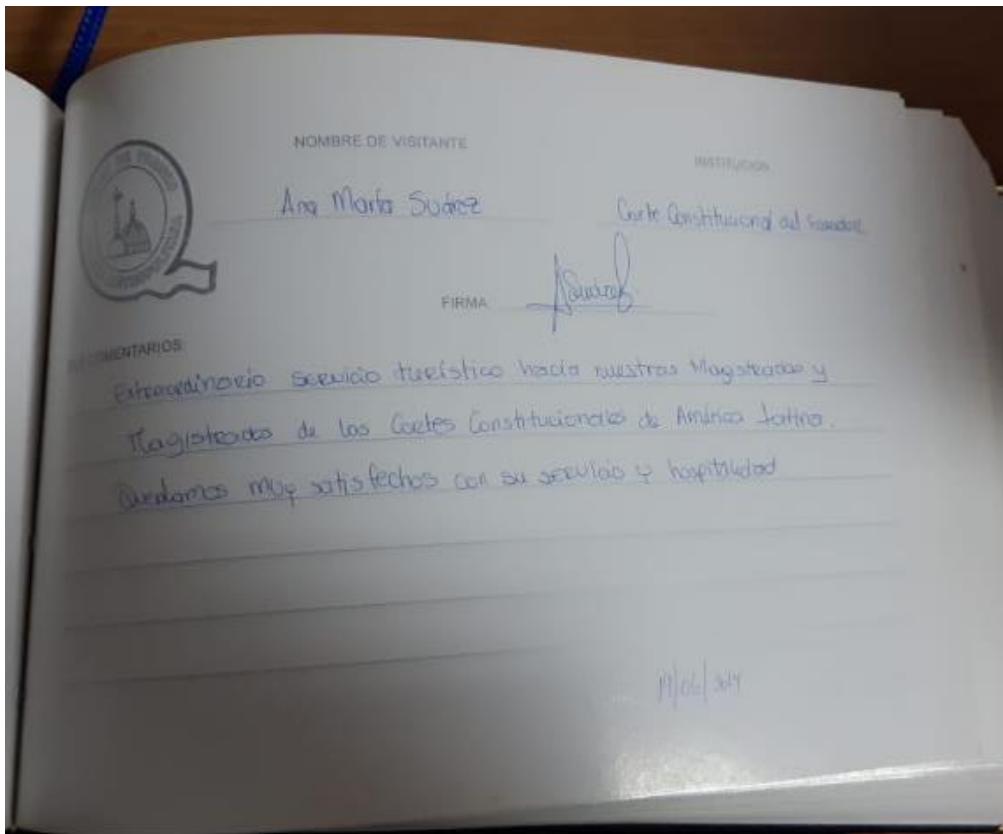 NOMBRE DE VISITANTE
INSTITUCION
Ana María Suárez
Corte Constitucional del Ecuador
FIRMA
ASuárez
COMENTARIOS:
Extraordinario servicio turístico hacia nuestras Magistradas y
Magistrados de las Cortes Constitucionales de América Latina.
Quedamos muy satisfechos con su servicio y hospitalidad
19/06/2019